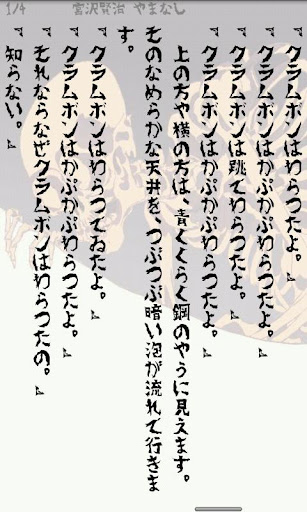 1/4 宮沢賢治 やまなし
『クラムボンはわらつたよ。』
『クラムボンはかぷかぷわらつたよ。』
『クラムボンは跳てわらつたよ。』
『クラムボンはかぷかぷわらつたよ。』
上の方や横の方は、青くくらく鋼のやうに見えます。
そのなめらかな天井を、つぶつぶ暗い泡が流れて行きま
す。
『クラムボンはわらつてゐたよ。』
『クラムボンはかぷかぷわらつたよ。』
『それならなぜクラムボンはわらつたの。』
『知らない。』